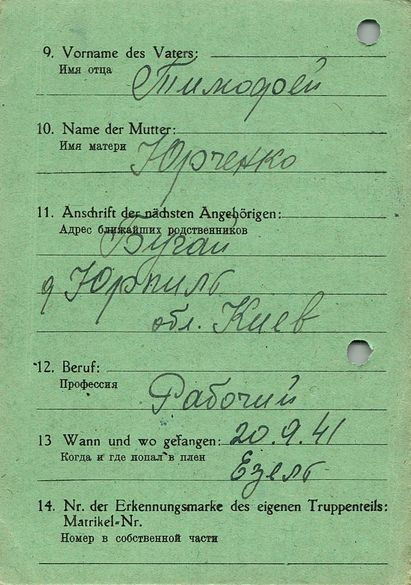 9. Vorname des Vaters:
Имя отца
Тимофей
10. Name der Mutter:
Имя матери
Юрченко
11. Anschrift der nächsten Angehörigen:
Адрес ближайших родственников
Бугай
д Юрпиль
обл. Киев
12. Beruf:
Профессия
Рабочий
13 Wann und wo gefangen: 20.9.41
Когда и где попал в плен
Езель
14. Nr. der Erkennungsmarke des eigenen Truppenteils:
Matrikel-Nr.
Номер в собственной части